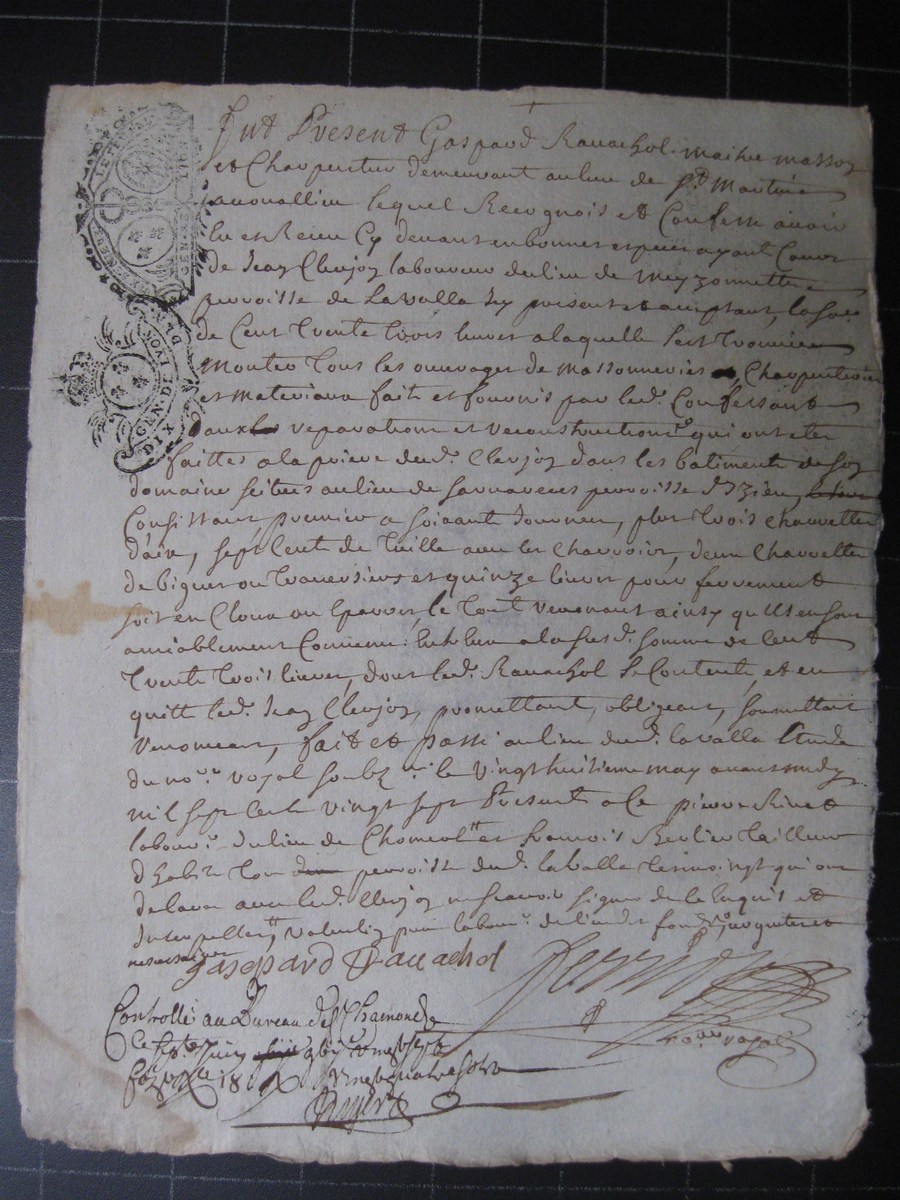 GEN. DE LYON
DIX DEN.
Fut Present Gaspard Ravachol maitre masson
et Charpentier demeurant au lieu de St Martin
acouallieu lequel Recognois et Confesse avoir
eu et Receu Cy devant en bonnes especes ayant Cours
de Jean Clerjon laboureur du lieu de Meyzonnette
parroisse de Lavalla Icy present et acceptant, la so.e
de Cent Trente Trois livres a laquelle sest Trouvées
Monter Tous les ouvrages de Massonneries Charpenteries
et materiaux fait et fournis par led. Confessant
aux reparations et reconstructions qui ont eter
faittes a la priere dud. Clerjon dans les batiments de son
domaine scitues au lieu de parroisse Dizieu,
Consistant premier a soixante Journees, plus Trois charrettes
daix, sept Cent de Tuille avec les charroirs, deux Charrettes
de bigues ou Traversiers et quinze livres pour ferrement
soit en Cloux ou Eparres, le Tout revenant ainsy quils en sont
amiablement Convenu Entreux a la susd. somme de Cent
Trente Trois livres, dont led. Ravachol se Contente, et en
quitte led. Jean Clerjon, promettant, obligeant, soumettant
renonceant, fait et passé au lieu dud. lavalla Etude
du no.re royal soubz.né le vingt huitieme may avant midy
mil sept cent vingt sept Present a ce pierre Rivet
labour.r du lieu de Chomiol et francois Berlier Tailleur
dhabit parroisse dud. lavalla Tesmoingt qui ont
declaré avec led. Clerjon ne scavoir signer de ce Enquis et
Interpellés
Gaspard Ravachol
no.re royal
Controllé au Bureau de St Chamond
Ce Juin